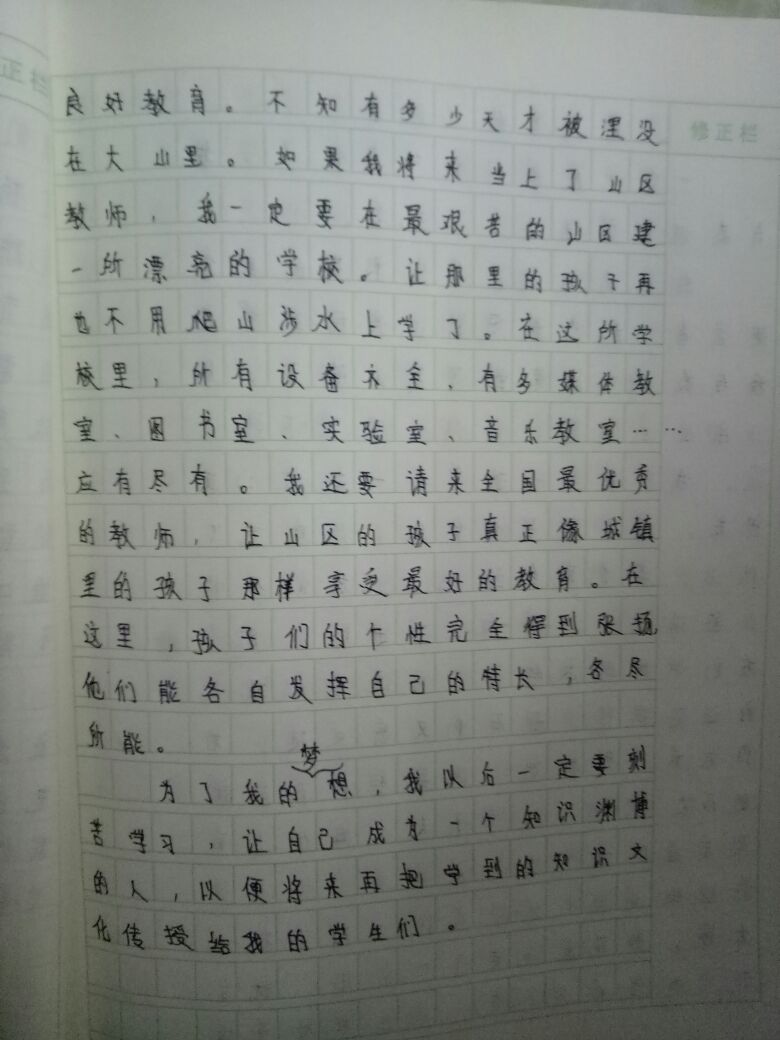 良好教育。不知有多少天才被湮没
修正栏
在大山里。如果我将来当上了山区
教师，我一定要在最艰苦的山区建
一所漂亮的学校。让那里的孩子再
也不用爬山涉水上学了。在这所学
校里，所有设备齐全，有多媒体教
室、图书室、实验室、音乐教室……
应有尽有。我还要请来全国最优秀
的教师，让山区的孩子真正像城镇
里的孩子那样享受最好的教育。在
这里，孩子们的个性完全得到张扬，
他们能各自发挥自己的特长，各尽
所能。
为了我的梦想，我以后一定要刻
苦学习，让自己成为一个知识渊博
的人，以便将来再把学到的知识文
化传授给我的学生们。